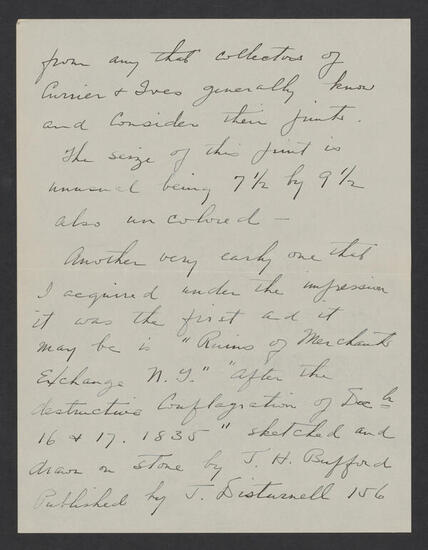 from any that collectors of
Currier & Ives generally know
and consider their prints.
The seize of this print is
unusual being 7 1/2 by 9 1/2
also un colored —
Another very early one that
I acquired under the impression
it was the first and it
may be is "Ruins of Merchants
Exchange N.Y." "after the
destructive Conflagration of Decbr
16 & 17. 1835" sketched and
drawn on stone by J. H. Bufford
Published by J. Disturnell 156